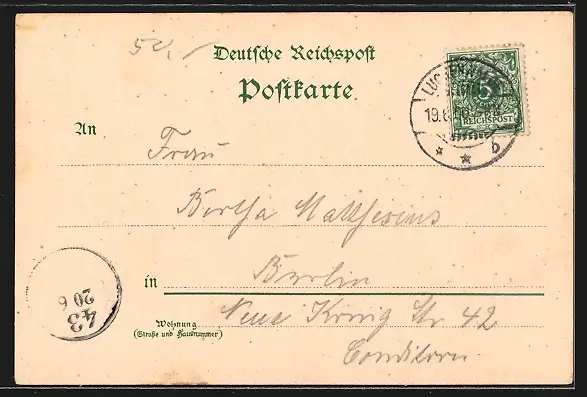 Deutsche Reichspost
Postkarte
5
REICHSPOST
19.6
b
An
Frau
Bertha Matthesius
in
Berlin
Wohnung
(Straße und Hausnummer)
Neue König Str 42
Conditorei
43
20 6